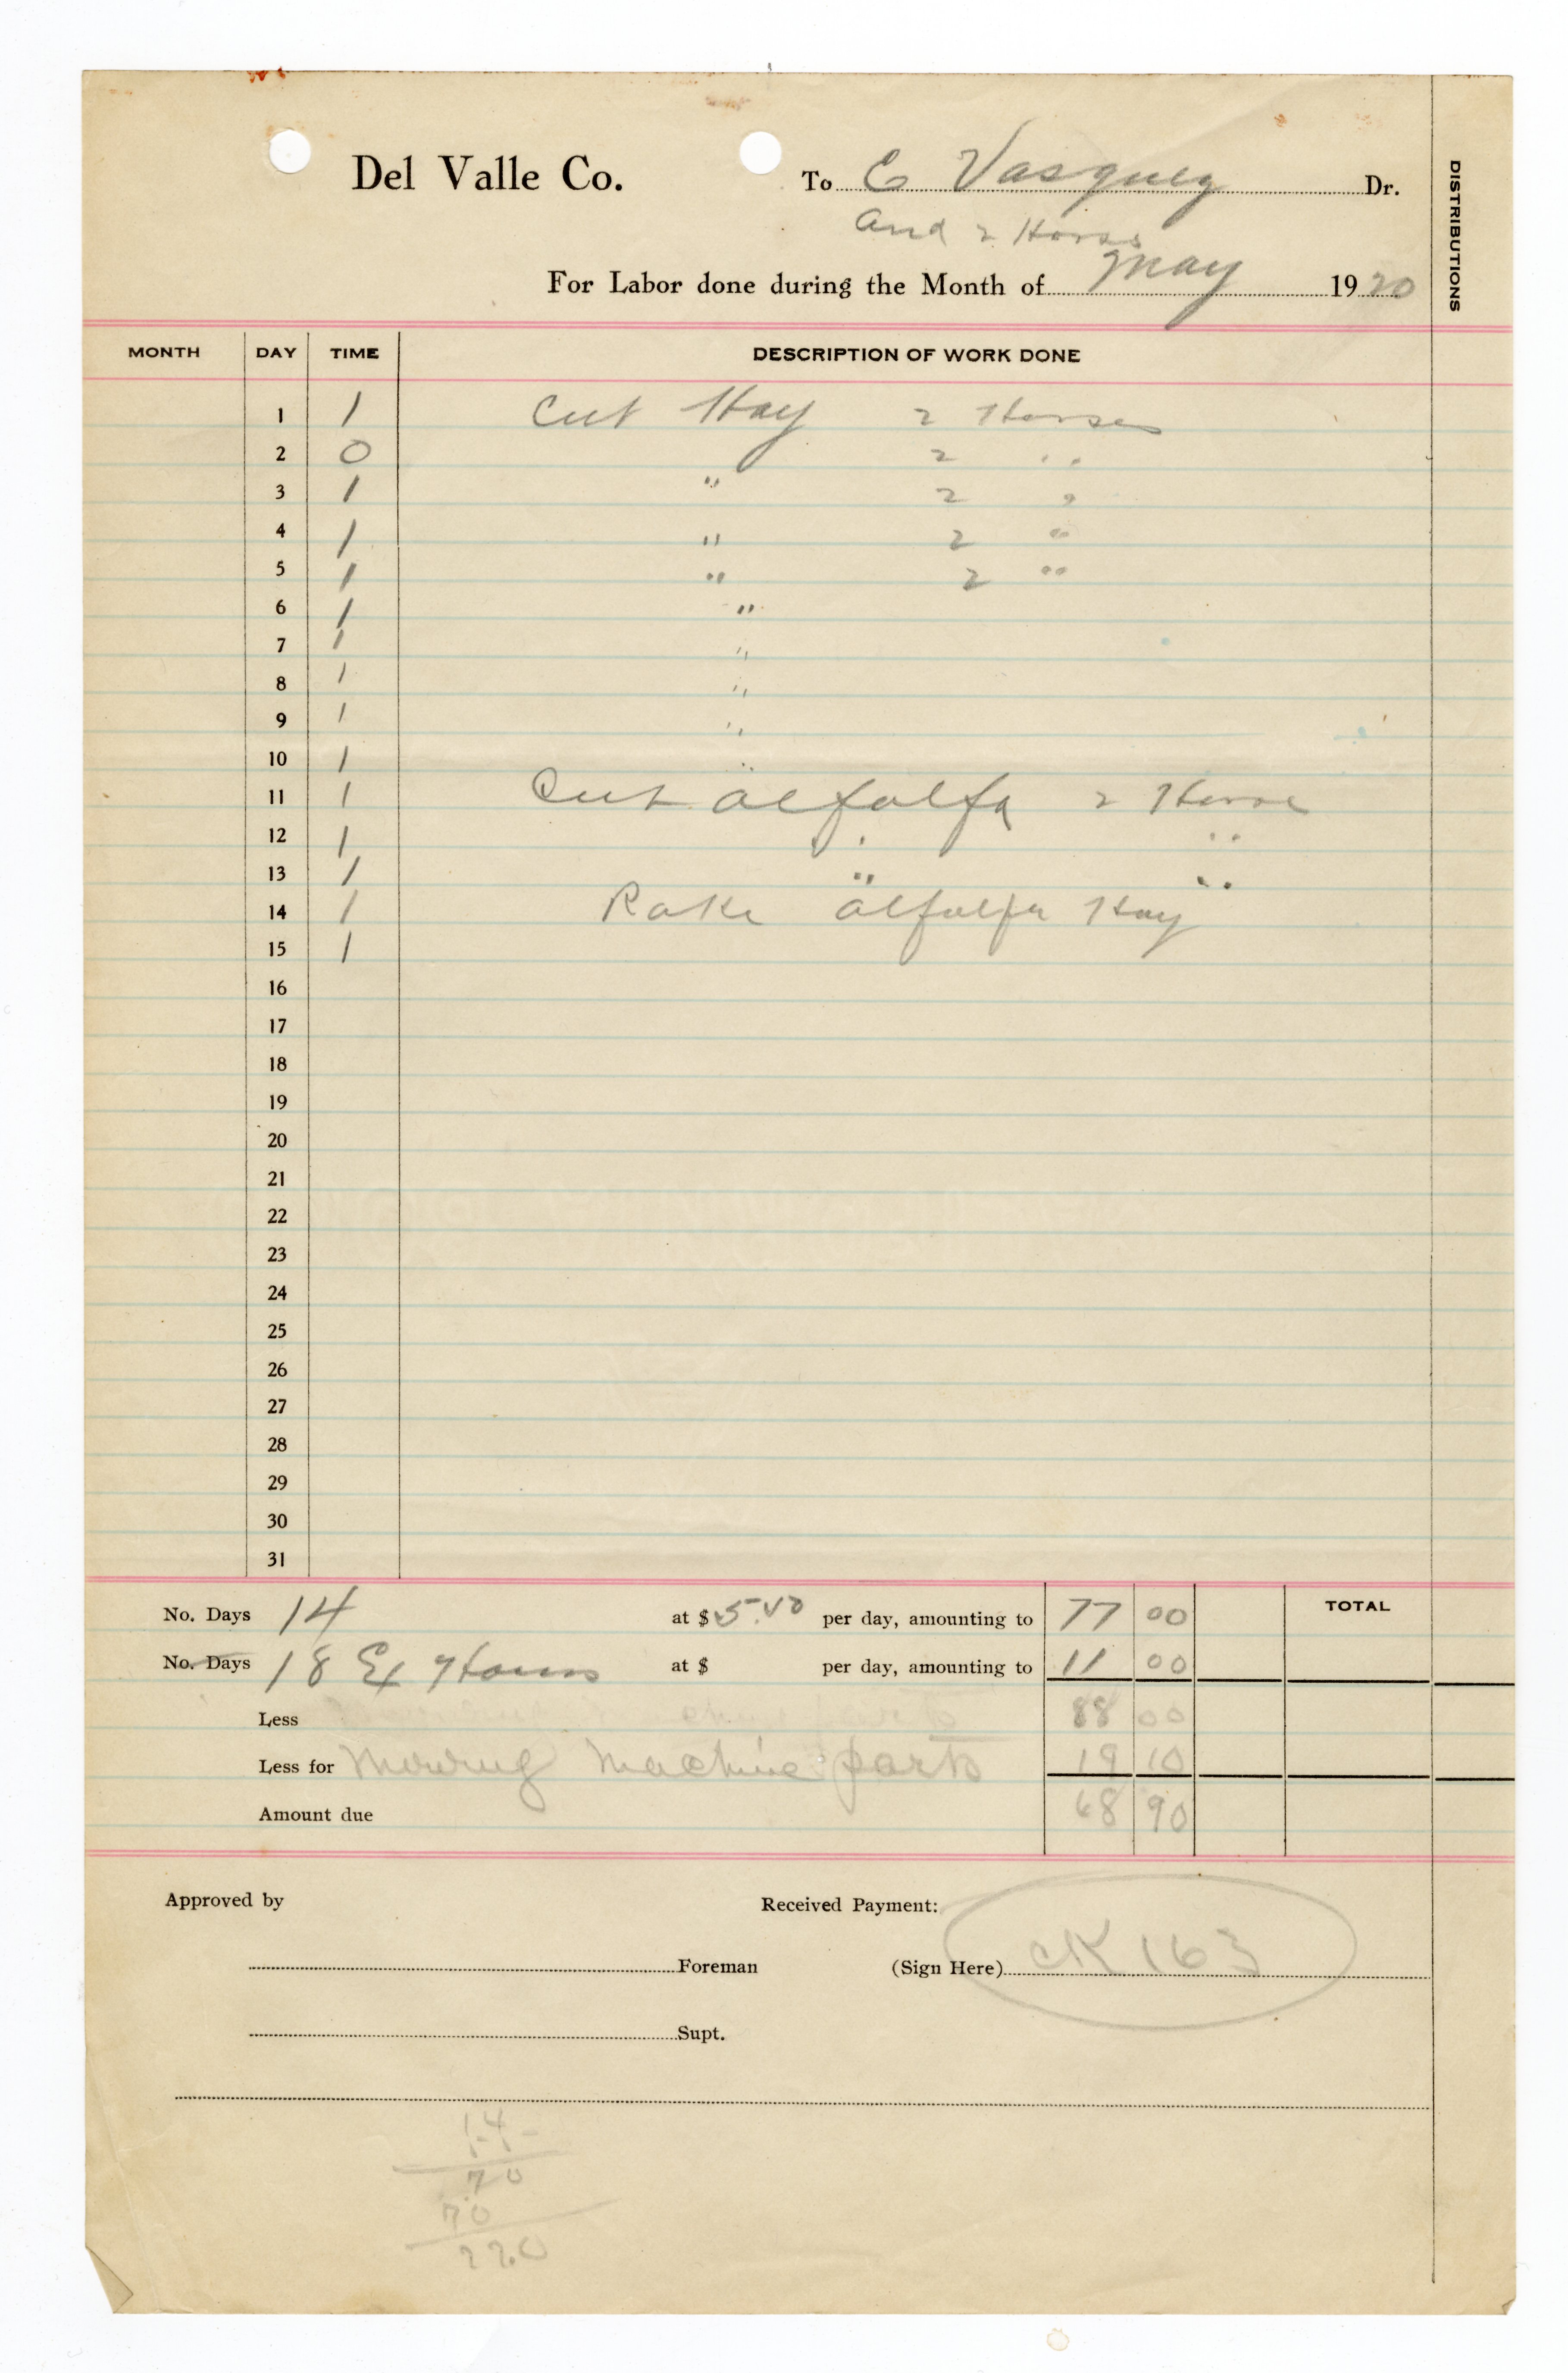 Del Valle Co. To C Vasquez Dr.
and 2 Horses
For Labor done during the Month of May 1920
DISTRIBUTIONS
MONTH DAY TIME DESCRIPTION OF WORK DONE
1 1 Cut Hay 2 Horses
2 0 2 "
3 1 " 2 "
4 1 " 2 "
5 1 " 2 "
6 1 "
7 1 "
8 1 "
9 1 "
10 1 "
11 1 Cut alfalfa 2 Horse
12 1 " "
13 1 " "
14 1 Rake alfalfa Hay
15 1
16
17
18
19
20
21
22
23
24
25
26
27
28
29
30
31
No. Days 14 at $ per day, amounting to 77 00 TOTAL
No. Days 18 Ex Hours at $ per day, amounting to 11 00
Less 88 00
Less for Mowing Machine parts 19 10
Amount due 68 90
Approved by Received Payment:
Foreman (Sign Here) CK 163
Supt.
14
70
70